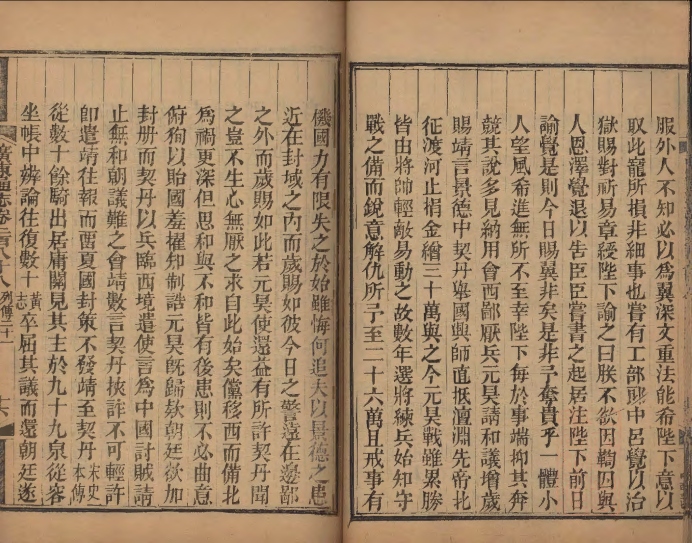 服外人不知必以為翼深文重法能希陛下意以
取此寵所損非細事也嘗有工部郎中呂覺以治
獄賜對祈易章綬陛下諭之曰朕不欲因鞫囚與
人恩澤覺退以告臣臣嘗書之起居注陛下前日
諭覺是則今日賜翼非矣是非予奪貴乎一體小
人望風希進無所不至幸陛下每於事端抑其奔
競其說多見納用會西鄙厭兵元昊請和議增歲
賜靖言景德中契丹舉國興師直抵澶淵先帝北
征渡河止捐金繒三十萬與之今元昊戰雖累勝
皆由將帥輕敵易動之故數年選將練兵始知守
戰之備而銳意解仇所予至二十六萬且戒事有
機國力有限失之於始雖悔何追夫以景德之患
近在封域之內而歲賜如彼今日之警遠在邊鄙
之外而歲賜如此若元昊使還益有所許契丹聞
之豈不生心無厭之求自此始矣儻移西而備北
為禍更深但思和與不和皆有後患則不必曲意
俯狥以貽國羞擢知制誥元昊旣歸欵朝廷欲加
封册而契丹以兵臨西境遣使言為中國討賊請
止無和朝議難之會靖數言契丹挾詐不可輕許
卽遣靖往報而畱夏國封策不發靖至契丹 宋史本傳
從數十餘騎出居庸關見其主於九十九泉從容
坐帳中辨論往復數十 黃志 卒屈其議而還朝廷遂
廣東通志卷二百八十八 列傳二十一 十六